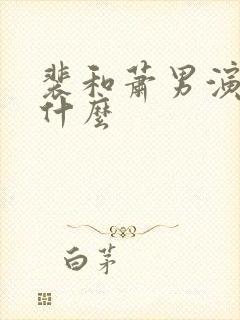 裴和萧男演
什麼
白茅